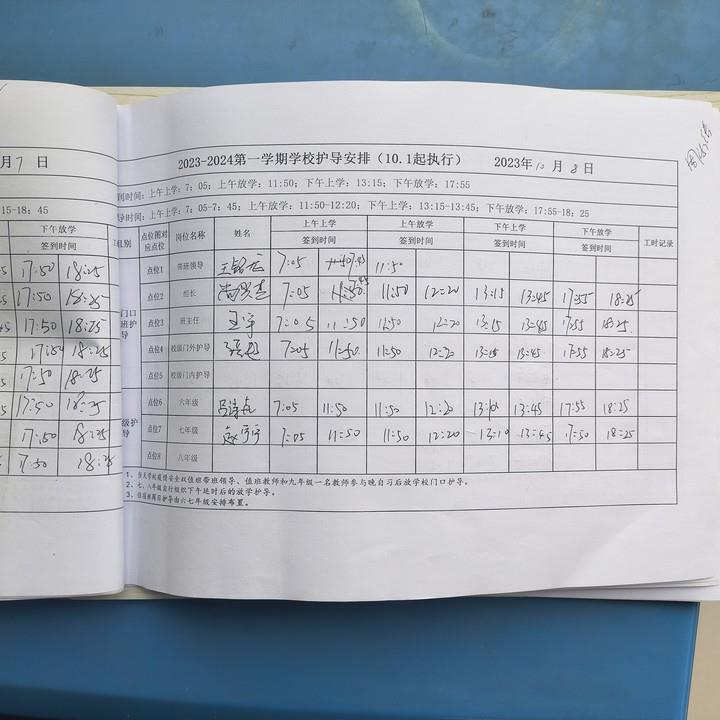 月7日
2023-2024第一学期学校护导安排（10.1起执行） 2023年10月8日
到时间：上午上学：7：05；上午放学：11:50；下午上学：13:15；下午放学：17:55
15-18；45
导时间：上午上学：7:05-7；45；上午放学：11:50-12:20；下午上学：13:15-13:45；下午放学：17:55-18；25
下午放学
签到时间
组别 点位图对应点位 岗位名称 姓名 上午上学 上午放学 下午上学 下午放学 工时记录
签到时间 签到时间 签到时间 签到时间
17:50 18:25
点位1 带班领导 7:05 11:50
17:50 18:25
点位2 组长 7:05 11:50 11:50 12:20 13:15 13:45 17:55 18:25
17:50 18:25
门口 班护导
点位3 班主任 王宇 7:05 11:50 11:50 12:20 13:15 13:45 17:55 18:25
17:50 18:25
点位4 校级门外护导 7:05 11:50 11:50 12:20 13:15 13:45 17:55 18:25
17:50 18:25
点位5 校级门内护导
17:50 18:25
点位6 六年级 7:05 11:50 11:50 12:20 13:45 17:55 18:25
17:50 18:25
级护导
点位7 七年级 赵宁宁 7:05 11:50 11:50 12:20 13:10 13:45 17:50 18:25
17:50 18:25
点位8 八年级
1、当天学校疫情安全双值班带班领导、值班教师和九年级一名教师参与晚自习后放学校门口护导。
2、七、八年级自行组织下午延时后的放学护导。
3、住宿班周日护导由六七年级安排布置。